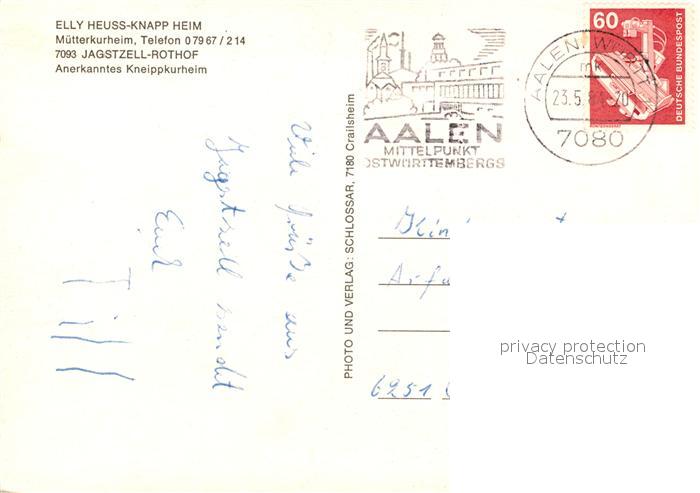 ELLY HEUSS-KNAPP HEIM
Mütterkurheim, Telefon 0 79 67 / 2 14
7093 JAGSTZELL-ROTHOF
Anerkanntes Kneippkurheim
Viele Grüße aus
Jagstzell sendet
Euch
Till
PHOTO UND VERLAG: SCHLOSSAR, 7180 Crailsheim
AALEN
MITTELPUNKT
OSTWÜRTTEMBERGS
AALEN, WÜRTT
mk
23.5.8
7080
60
DEUTSCHE BUNDESPOST
6251
privacy protection
Datenschutz